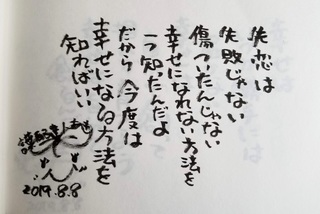 失恋は
失敗じゃない
傷ついたんじゃない
幸せになれない方法を
一つ知ったんだよ
だから今度は
幸せになる方法を
知ればいい
2019.8.8